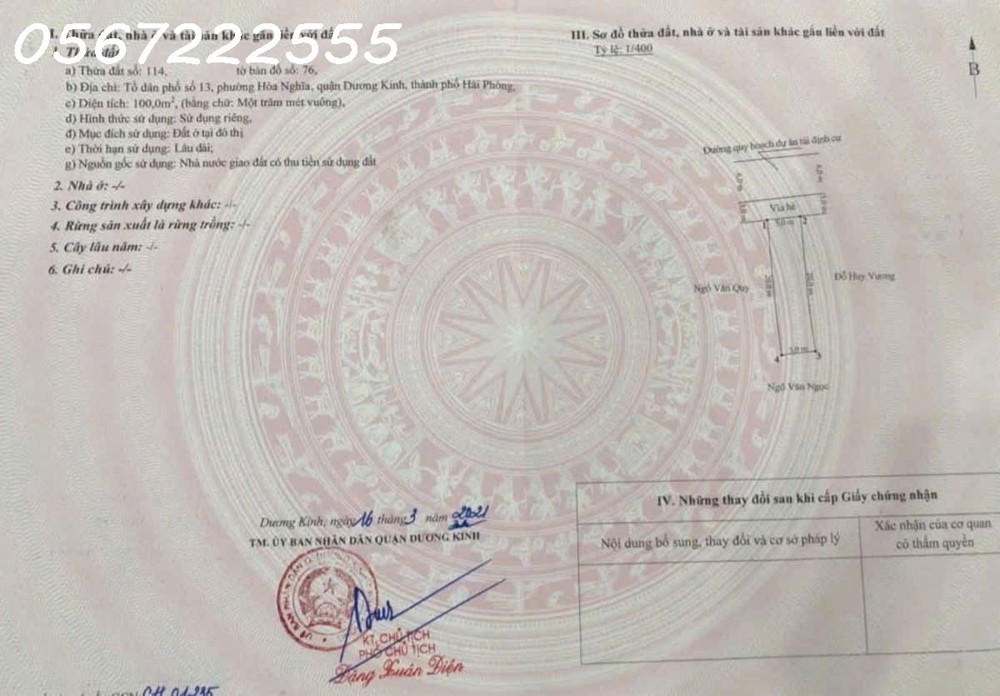 0567222555
I. Thửa đất, nhà ở và tài sản khác gắn liền với đất
1. Thửa đất
a) Thửa đất số: 114, tờ bản đồ số: 76,
b) Địa chỉ: Tổ dân phố số 13, phường Hòa Nghĩa, quận Dương Kinh, thành phố Hải Phòng,
c) Diện tích: 100,0m², (bằng chữ: Một trăm mét vuông),
d) Hình thức sử dụng: Sử dụng riêng,
đ) Mục đích sử dụng: Đất ở tại đô thị
e) Thời hạn sử dụng: Lâu dài;
g) Nguồn gốc sử dụng: Nhà nước giao đất có thu tiền sử dụng đất
2. Nhà ở: -/-
3. Công trình xây dựng khác: -/-
4. Rừng sản xuất là rừng trồng: -/-
5. Cây lâu năm: -/-
6. Ghi chú: -/-
III. Sơ đồ thửa đất, nhà ở và tài sản khác gắn liền với đất
Tỷ lệ: 1/400
B
Đường quy hoạch dự án tái định cư
Vỉa hè
1 5,0 m 2
20,0 m
20,0 m
Ngô Văn Quy
Đỗ Huy Vương
4 5,0 m 3
Ngô Văn Ngọc
Dương Kinh, ngày 16 tháng 3 năm 2021
TM. ỦY BAN NHÂN DÂN QUẬN DƯƠNG KINH
KT. CHỦ TỊCH
PHÓ CHỦ TỊCH
Đặng Xuân Diện
IV. Những thay đổi sau khi cấp Giấy chứng nhận
Nội dung bổ sung, thay đổi và cơ sở pháp lý
Xác nhận của cơ quan
có thẩm quyền